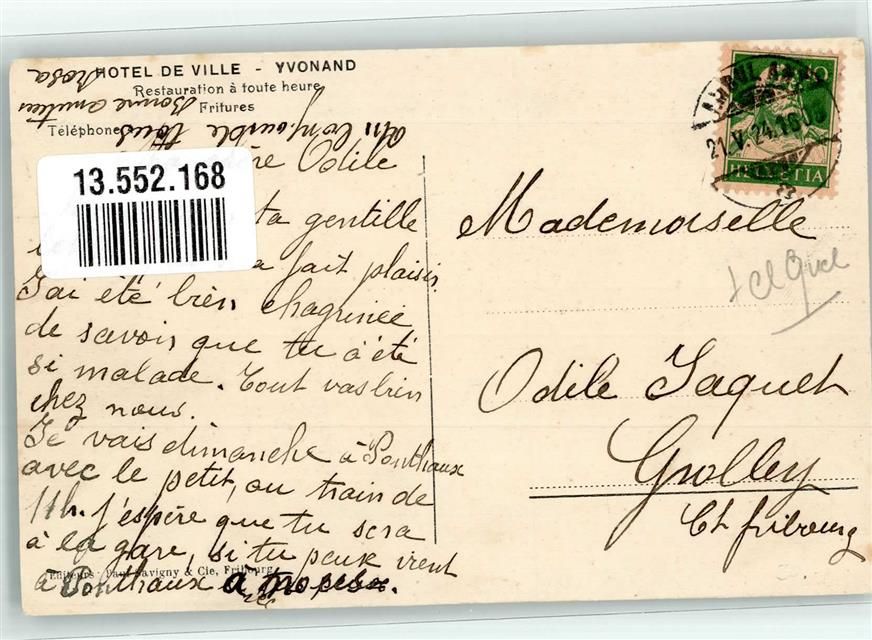 HOTEL DE VILLE - YVONAND
Restauration à toute heure
Fritures
Téléphone
13.552.168
Odile
ta gentille
a fait plaisir
J'ai été bien chagrinée
de savoir que tu à été
si malade. Tout vas bien
chez nous.
Je vais dimanche à Ponthaux
avec le petit, au train de
11h. J'espère que tu sera
à la gare, si tu peux vient
à Ponthaux
Bonne amitiés
Rosa
Editeurs: Paul Savigny & Cie, Fribourg
AMBULANT
21.V.24.16
10
HELVETIA
Mademoiselle
Odile Jaquet
Grolley
Ct fribourg